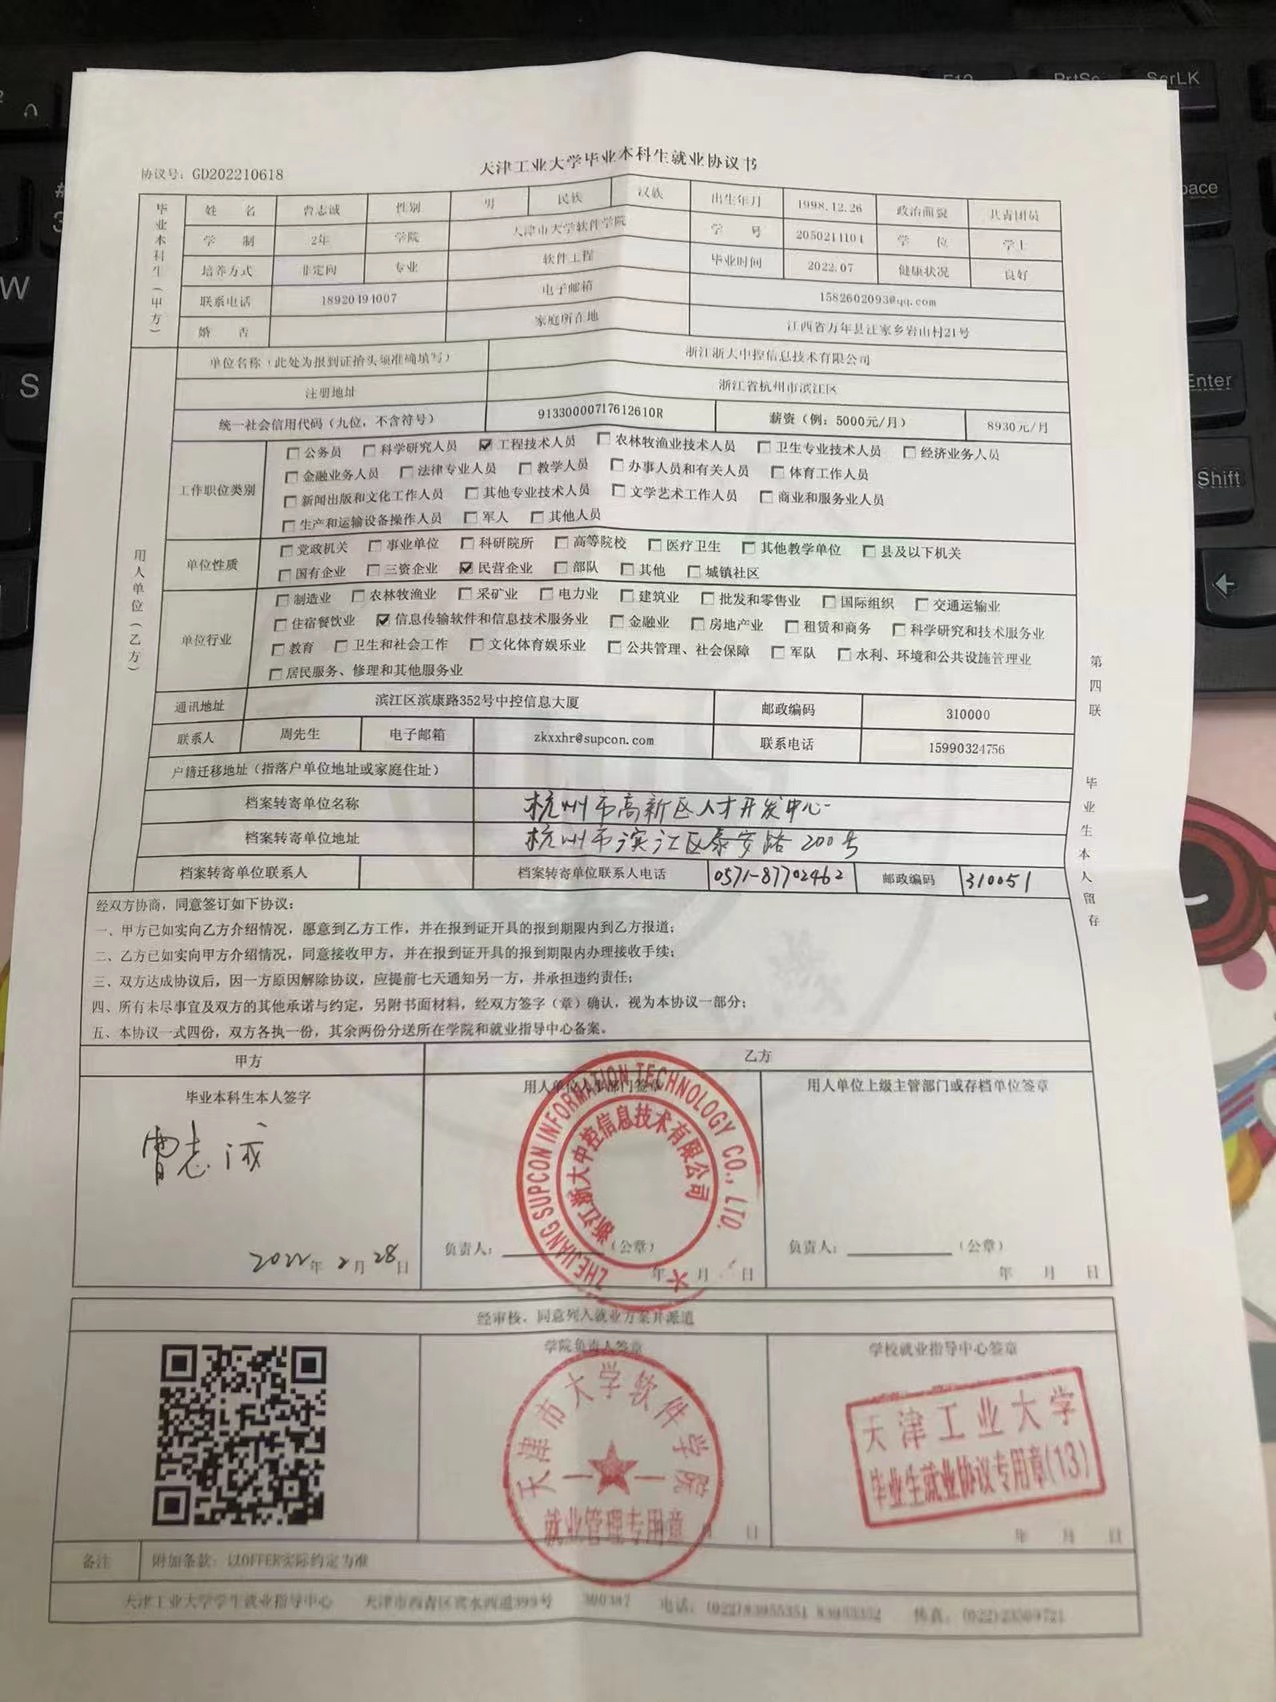 天津工业大学毕业本科生就业协议书
协议号: GD202210618
毕业本科生(甲方)
姓 名 曹志诚 性别 男 民族 汉族 出生年月 1998.12.26 政治面貌 共青团员
学 制 2年 学院 天津市大学软件学院 学 号 2050211101 学 位 学士
培养方式 非定向 专业 软件工程 毕业时间 2022.07 健康状况 良好
联系电话 18920494007 电子邮箱 1582602093@qq.com
婚 否 家庭所在地 江西省万年县汪家乡岩山村21号
用人单位(乙方)
单位名称(此处为报到证抬头须准确填写) 浙江浙大中控信息技术有限公司
注册地址 浙江省杭州市滨江区
统一社会信用代码(九位,不含符号) 91330000717612610R 薪资(例:5000元/月) 8930元/月
工作职位类别
公务员 科学研究人员 工程技术人员 农林牧渔业技术人员 卫生专业技术人员 经济业务人员
金融业务人员 法律专业人员 教学人员 办事人员和有关人员 体育工作人员
新闻出版和文化工作人员 其他专业技术人员 文学艺术工作人员 商业和服务业人员
生产和运输设备操作人员 军人 其他人员
单位性质
党政机关 事业单位 科研院所 高等院校 医疗卫生 其他教学单位 县及以下机关
国有企业 三资企业 民营企业 部队 其他 城镇社区
单位行业
制造业 农林牧渔业 采矿业 电力业 建筑业 批发和零售业 国际组织 交通运输业
住宿餐饮业 信息传输软件和信息技术服务业 金融业 房地产业 租赁和商务 科学研究和技术服务业
教育 卫生和社会工作 文化体育娱乐业 公共管理、社会保障 军队 水利、环境和公共设施管理业
居民服务、修理和其他服务业
通讯地址 滨江区滨康路352号中控信息大厦 邮政编码 310000
联系人 周先生 电子邮箱 zkxxhr@supcon.com 联系电话 15990324756
户籍迁移地址(指落户单位地址或家庭住址)
档案转寄单位名称 杭州市高新区人才开发中心
档案转寄单位地址 杭州市滨江区泰安路200号
档案转寄单位联系人 档案转寄单位联系人电话 0571-87702462 邮政编码 310051
第四联 毕业生本人留存
经双方协商,同意签订如下协议:
一、甲方已如实向乙方介绍情况,愿意到乙方工作,并在报到证开具的报到期限内到乙方报道;
二、乙方已如实向甲方介绍情况,同意接收甲方,并在报到证开具的报到期限内办理接收手续;
三、双方达成协议后,因一方原因解除协议,应提前七天通知另一方,并承担违约责任;
四、所有未尽事宜及双方的其他承诺与约定,另附书面材料,经双方签字(章)确认,视为本协议一部分;
五、本协议一式四份,双方各执一份,其余两份分送所在学院和就业指导中心备案。
甲方 乙方
毕业本科生本人签字 用人单位人事部门签章 用人单位上级主管部门或存档单位签章
曹志诚
ZHEJIANG SUPCON INFORMATION TECHNOLOGY CO., LTD.
浙江浙大中控信息技术有限公司
负责人: (公章) 负责人: (公章)
2022年2月28日 年 月 日 年 月 日
经审核,同意列入就业方案并派遣
学院负责人签章 学校就业指导中心签章
天津市大学软件学院
就业管理专用章
天津工业大学
毕业生就业协议专用章(13)
月 日 年 月 日
备注 附加条款:以OFFER实际约定为准
天津工业大学学生就业指导中心 天津市西青区宾水西道399号 300387 电话:(022)83955351 83955352 传真:(022)23509721